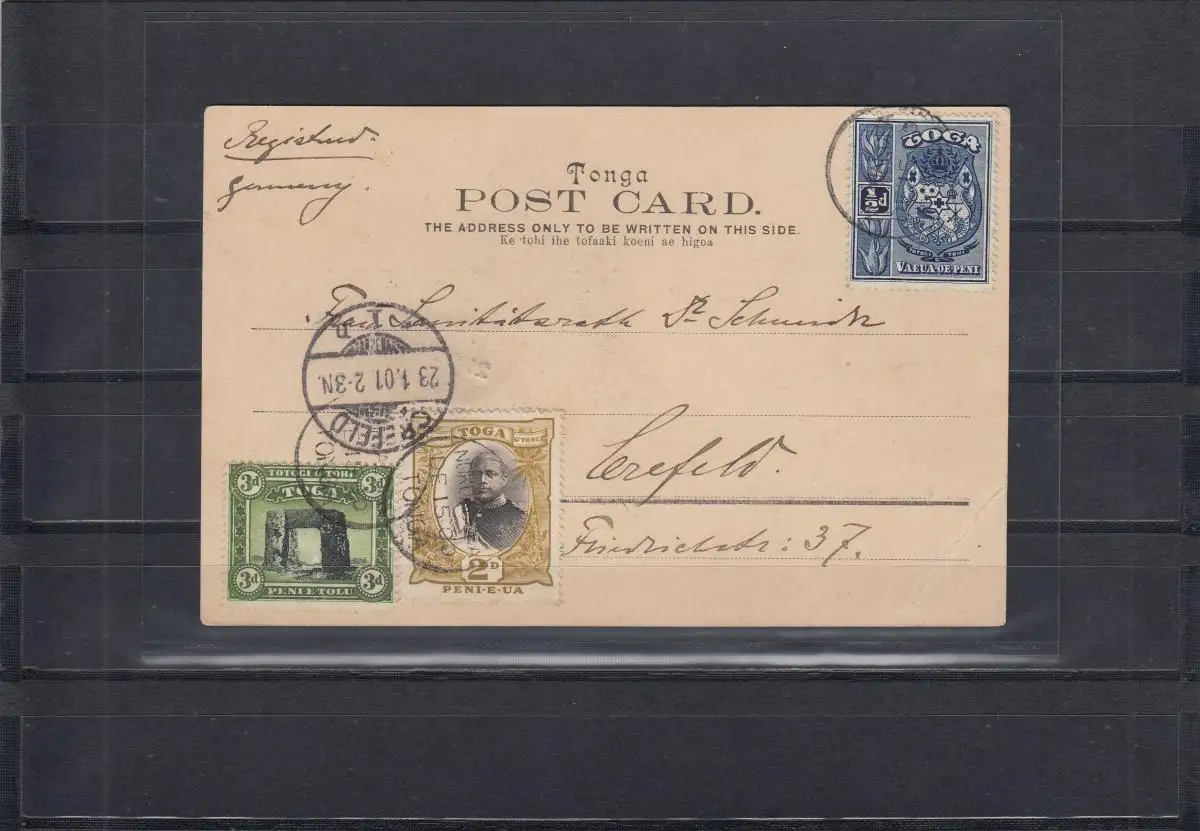 Registered.
Germany.
Tonga
POST CARD.
THE ADDRESS ONLY TO BE WRITTEN ON THIS SIDE.
Ke tohi ihe tofaaki koeni ae higoa
TOGA
½d
TOTOGI TOHI
VAEUA·OE·PENI
Frau Sanitätsrath Dr Schmidt
Crefeld.
Friedrichstr: 37.
CREFELD
23.1.01.2-3N.
1 D
TOTOGI G TOHI
3d 3d
TOGA
3d 3d
PENI E TOLU
TOGA
G TOHI
2D
PENI·E·UA
TONGA